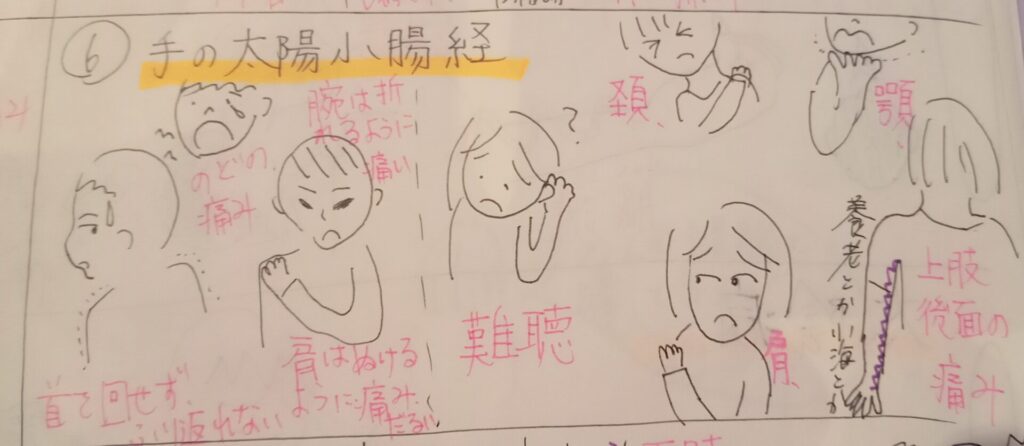 ⑥ 手の太陽小腸経
のどの
痛み
腕は折
れるように
痛い
首で回せず、
ふり返れない
肩はぬける
ように痛み、
だるい
?
難聴
頚、
顎、
肩、
養老とか小海とか
上肢
後面の
痛み